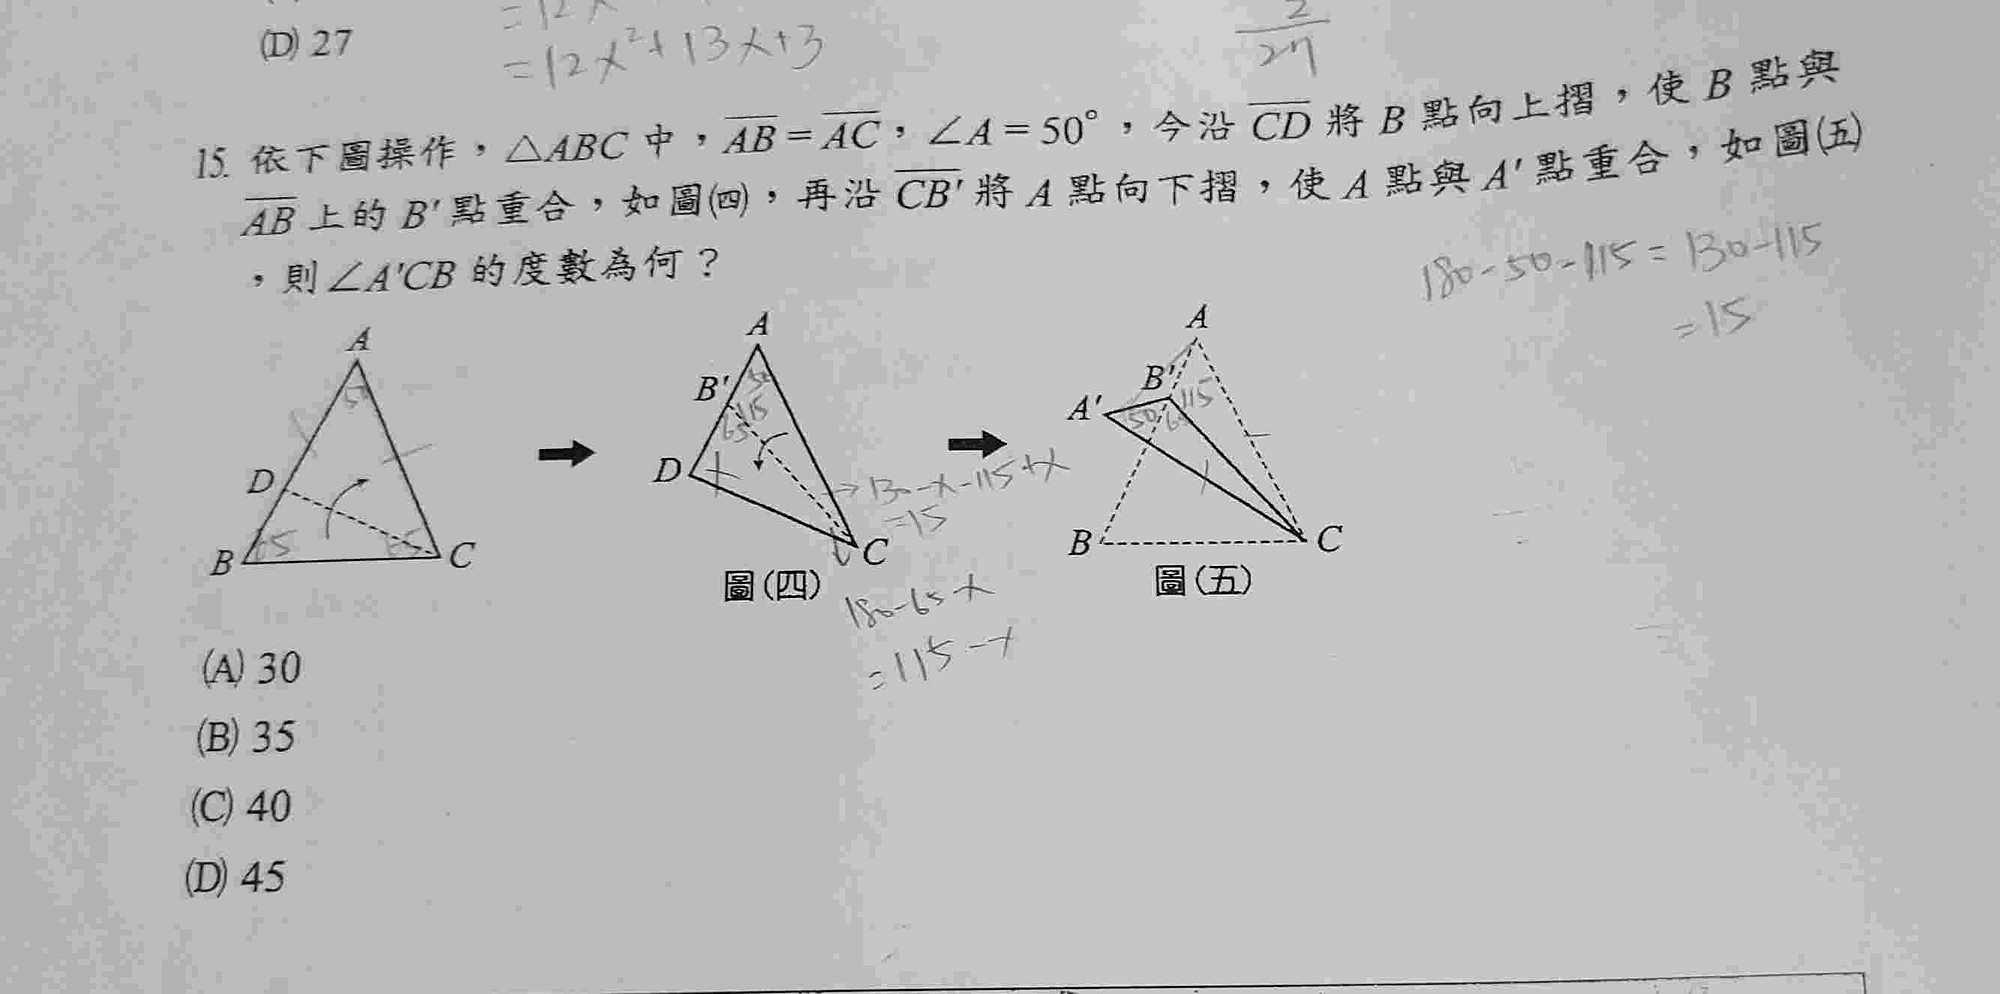 (D) 27
=12x
=12x²+13x+3
2
27
15. 依下圖操作,△ABC中,AB=AC,∠A=50°,今沿CD將B點向上摺,使B點與
AB上的B'點重合,如圖(四),再沿CB'將A點向下摺,使A點與A'點重合,如圖(五)
,則∠A'CB的度數為何?
180-50-115=130-115
=15
A
D
B
C
65
A
B'
D
C
50
115
65
x
圖(四)
→130-x-115+x
=15
180-65-x
=115-x
A
B'
A'
B
C
50
65
115
圖(五)
(A) 30
(B) 35
(C) 40
(D) 45